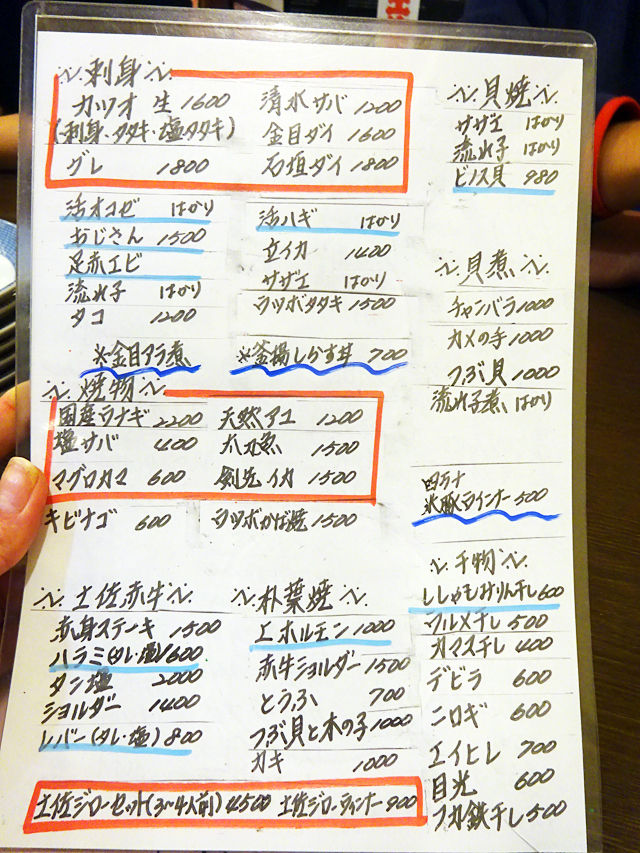 刺身
カツオ 生 1600
(刺身・タタキ・塩タタキ)
グレ 1800
清水サバ 1200
金目ダイ 1600
石垣ダイ 1800
活オコゼ はかり
おじさん 1500
足赤エビ
流れ子 はかり
タコ 1200
活ハギ はかり
立イカ 1400
サザエ はかり
ウツボタタキ 1500
※金目アラ煮
※釜揚しらす丼 700
焼物
国産ウナギ 2200
塩サバ 400
マグロカマ 600
キビナゴ 600
天然アユ 1200
1500
剣先イカ 1500
ウツボかば焼 1500
土佐赤牛
赤身ステーキ 1500
ハラミ(タレ・塩) 1600
タン塩 2000
ショルダー 1400
レバー(タレ・塩) 800
朴葉焼
エホルモン 1000
赤牛ショルダー 1500
とうふ 700
つぶ貝と木の子 1000
カキ 1000
土佐ジローセット(3〜4人前) 4500 土佐ジローウィンナー 900
貝焼
サザエ はかり
流れ子 はかり
ビノス貝 980
貝煮
チャンバラ 1000
カメの手 1000
つぶ貝 1000
流れ子煮 はかり
四万十
米豚ウインナー 500
干物
ししゃもみりん干し 600
ウルメ干し 500
カマス干し 400
デビラ 600
ニロギ 600
エイヒレ 700
目光 600
フカ鉄干し 500